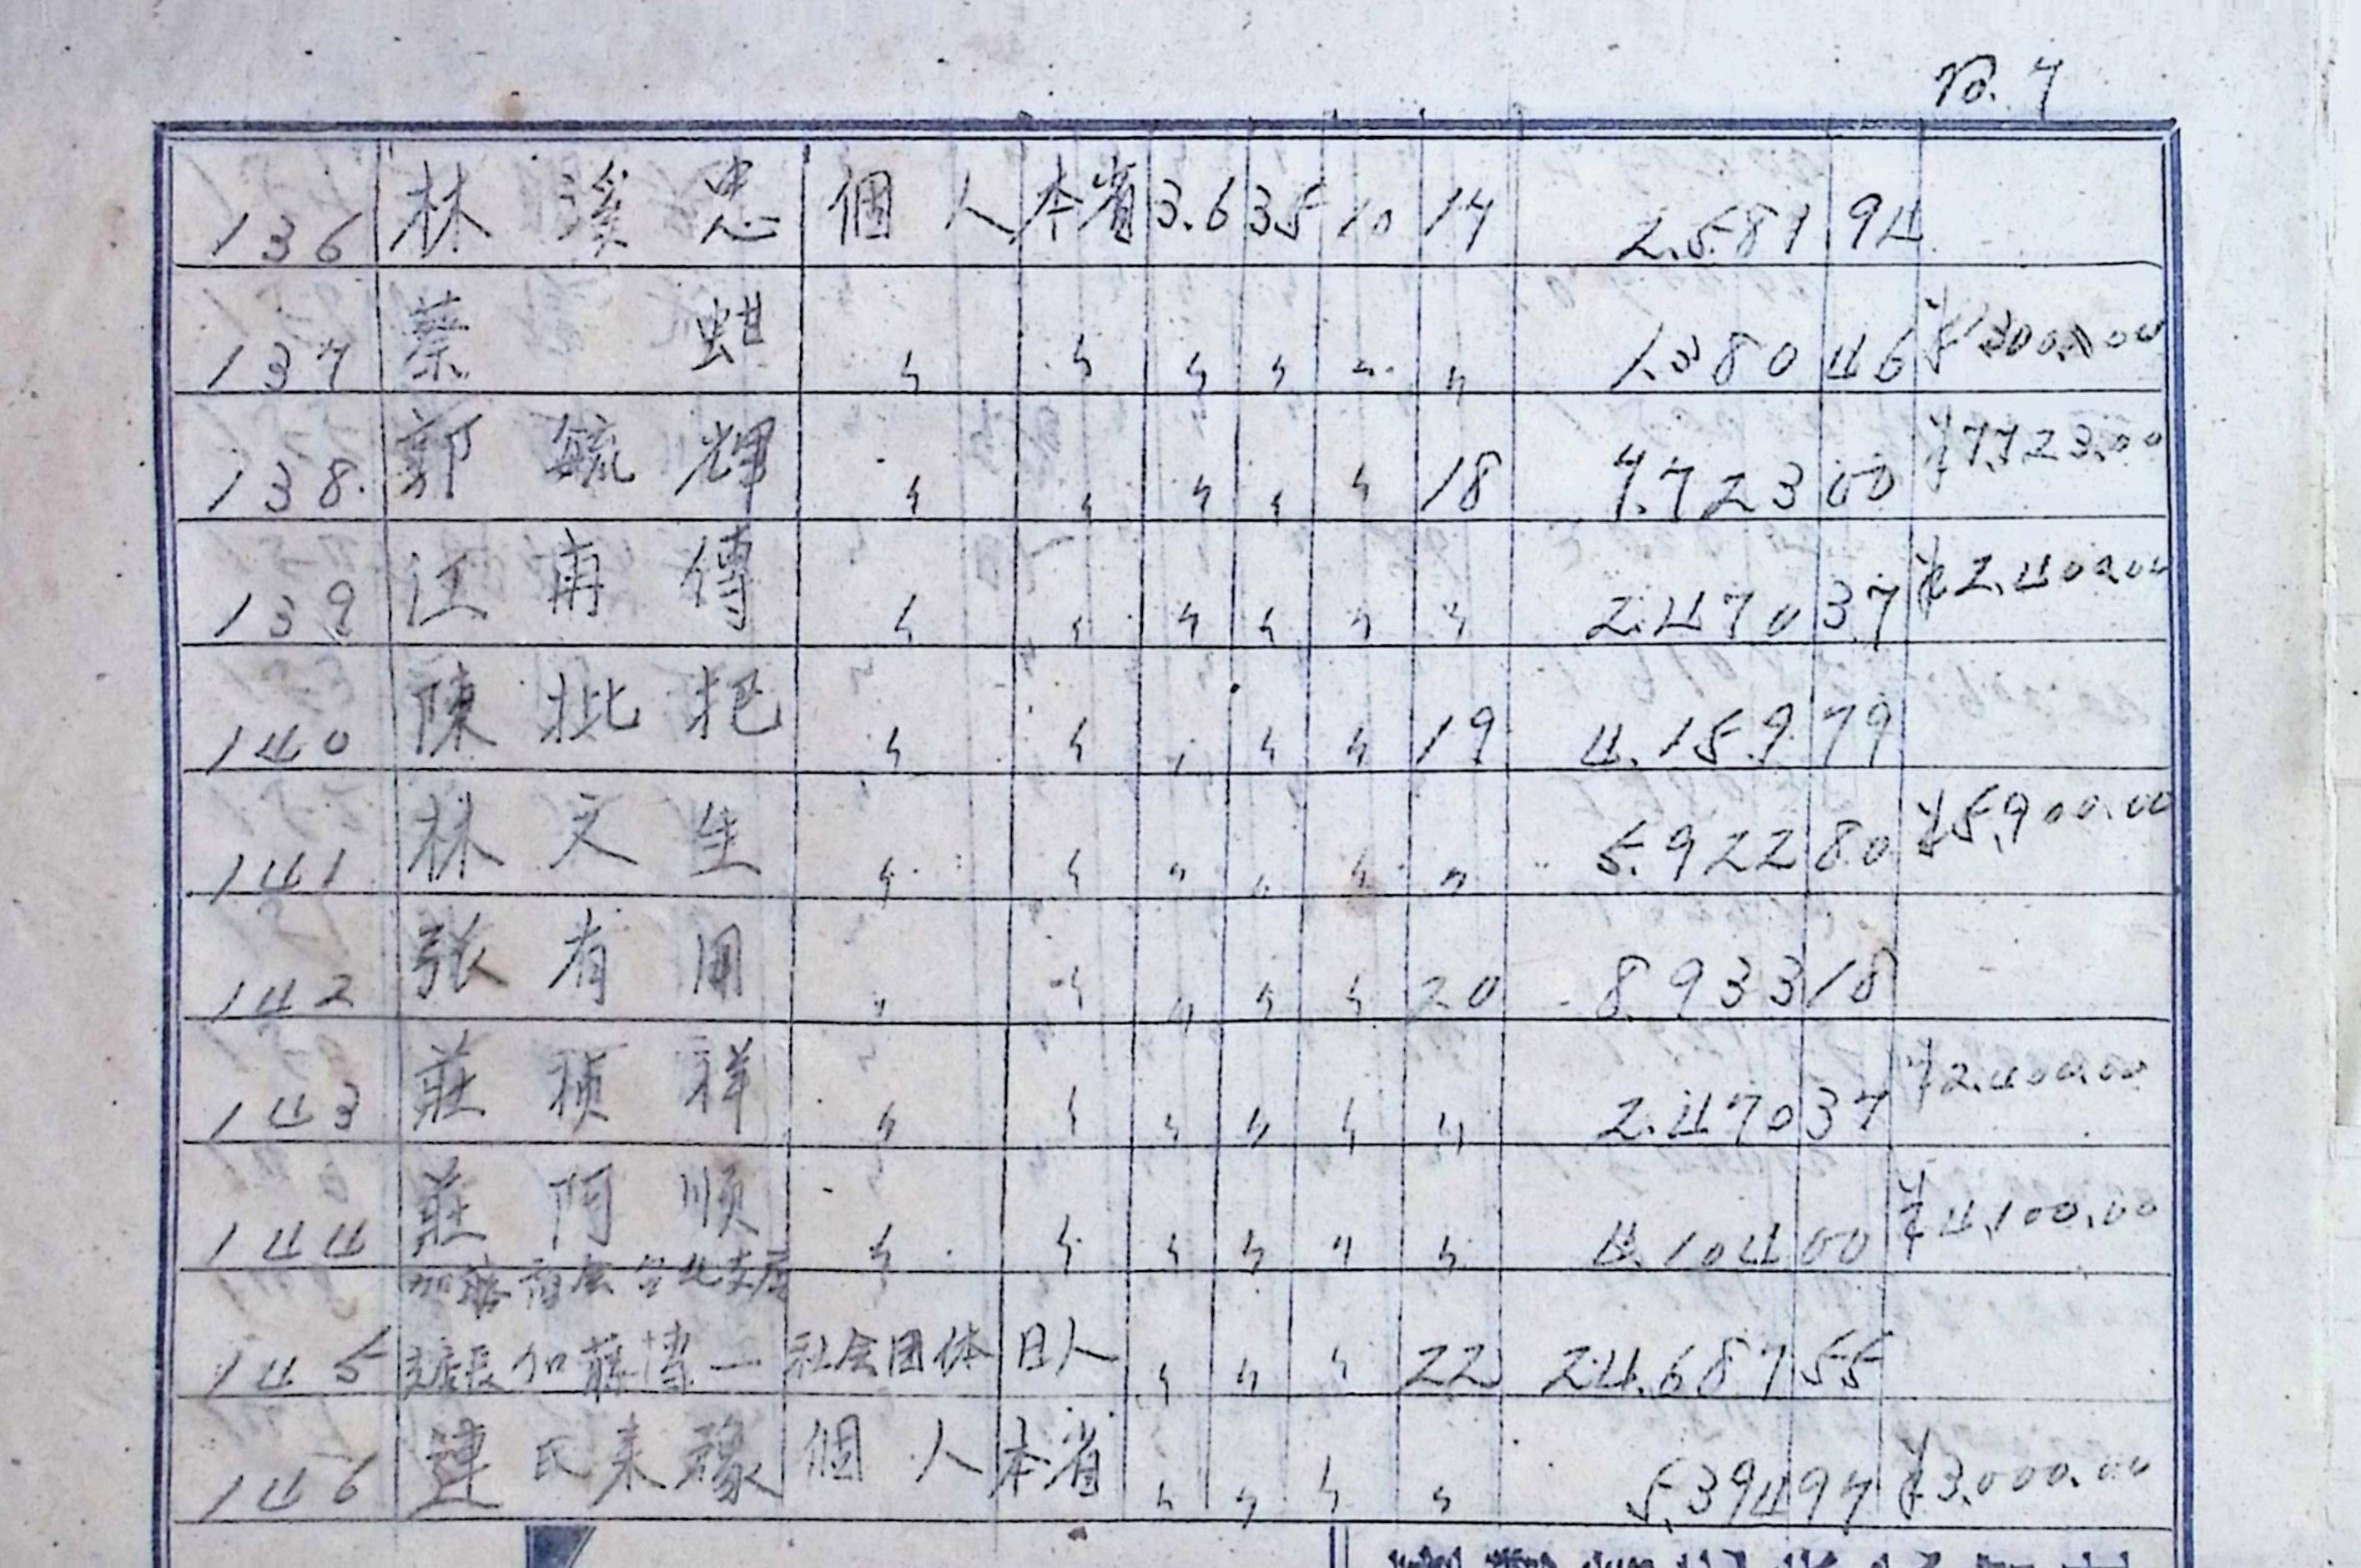 No. 7
136 林溪忠 個人 本省 3.6 35 10 17 2.587 94
137 蔡蚶 〃 〃 〃 〃 〃 〃 1.380 46
138 郭毓輝 〃 〃 〃 〃 〃 18 7.723 00 ¥7.723.00
139 江再傳 〃 〃 〃 〃 〃 〃 2.470 37 ¥2.400.00
140 陳枇杷 〃 〃 〃 〃 〃 19 4.159 79
141 林文生 〃 〃 〃 〃 〃 〃 5.922 80 ¥5.900.00
142 張有用 〃 〃 〃 〃 〃 20 8.933 18
143 莊楨祥 〃 〃 〃 〃 〃 〃 2.470 37 ¥2.400.00
144 莊阿順 〃 〃 〃 〃 〃 〃 4.104 00 ¥4.100.00
加藤商会台北支店
145 支店長加藤博一 社会団体 日人 〃 〃 〃 22 24.687 55
146 連氏来豫 個人 本省 〃 〃 〃 〃 5.394 97 ¥3.000.00